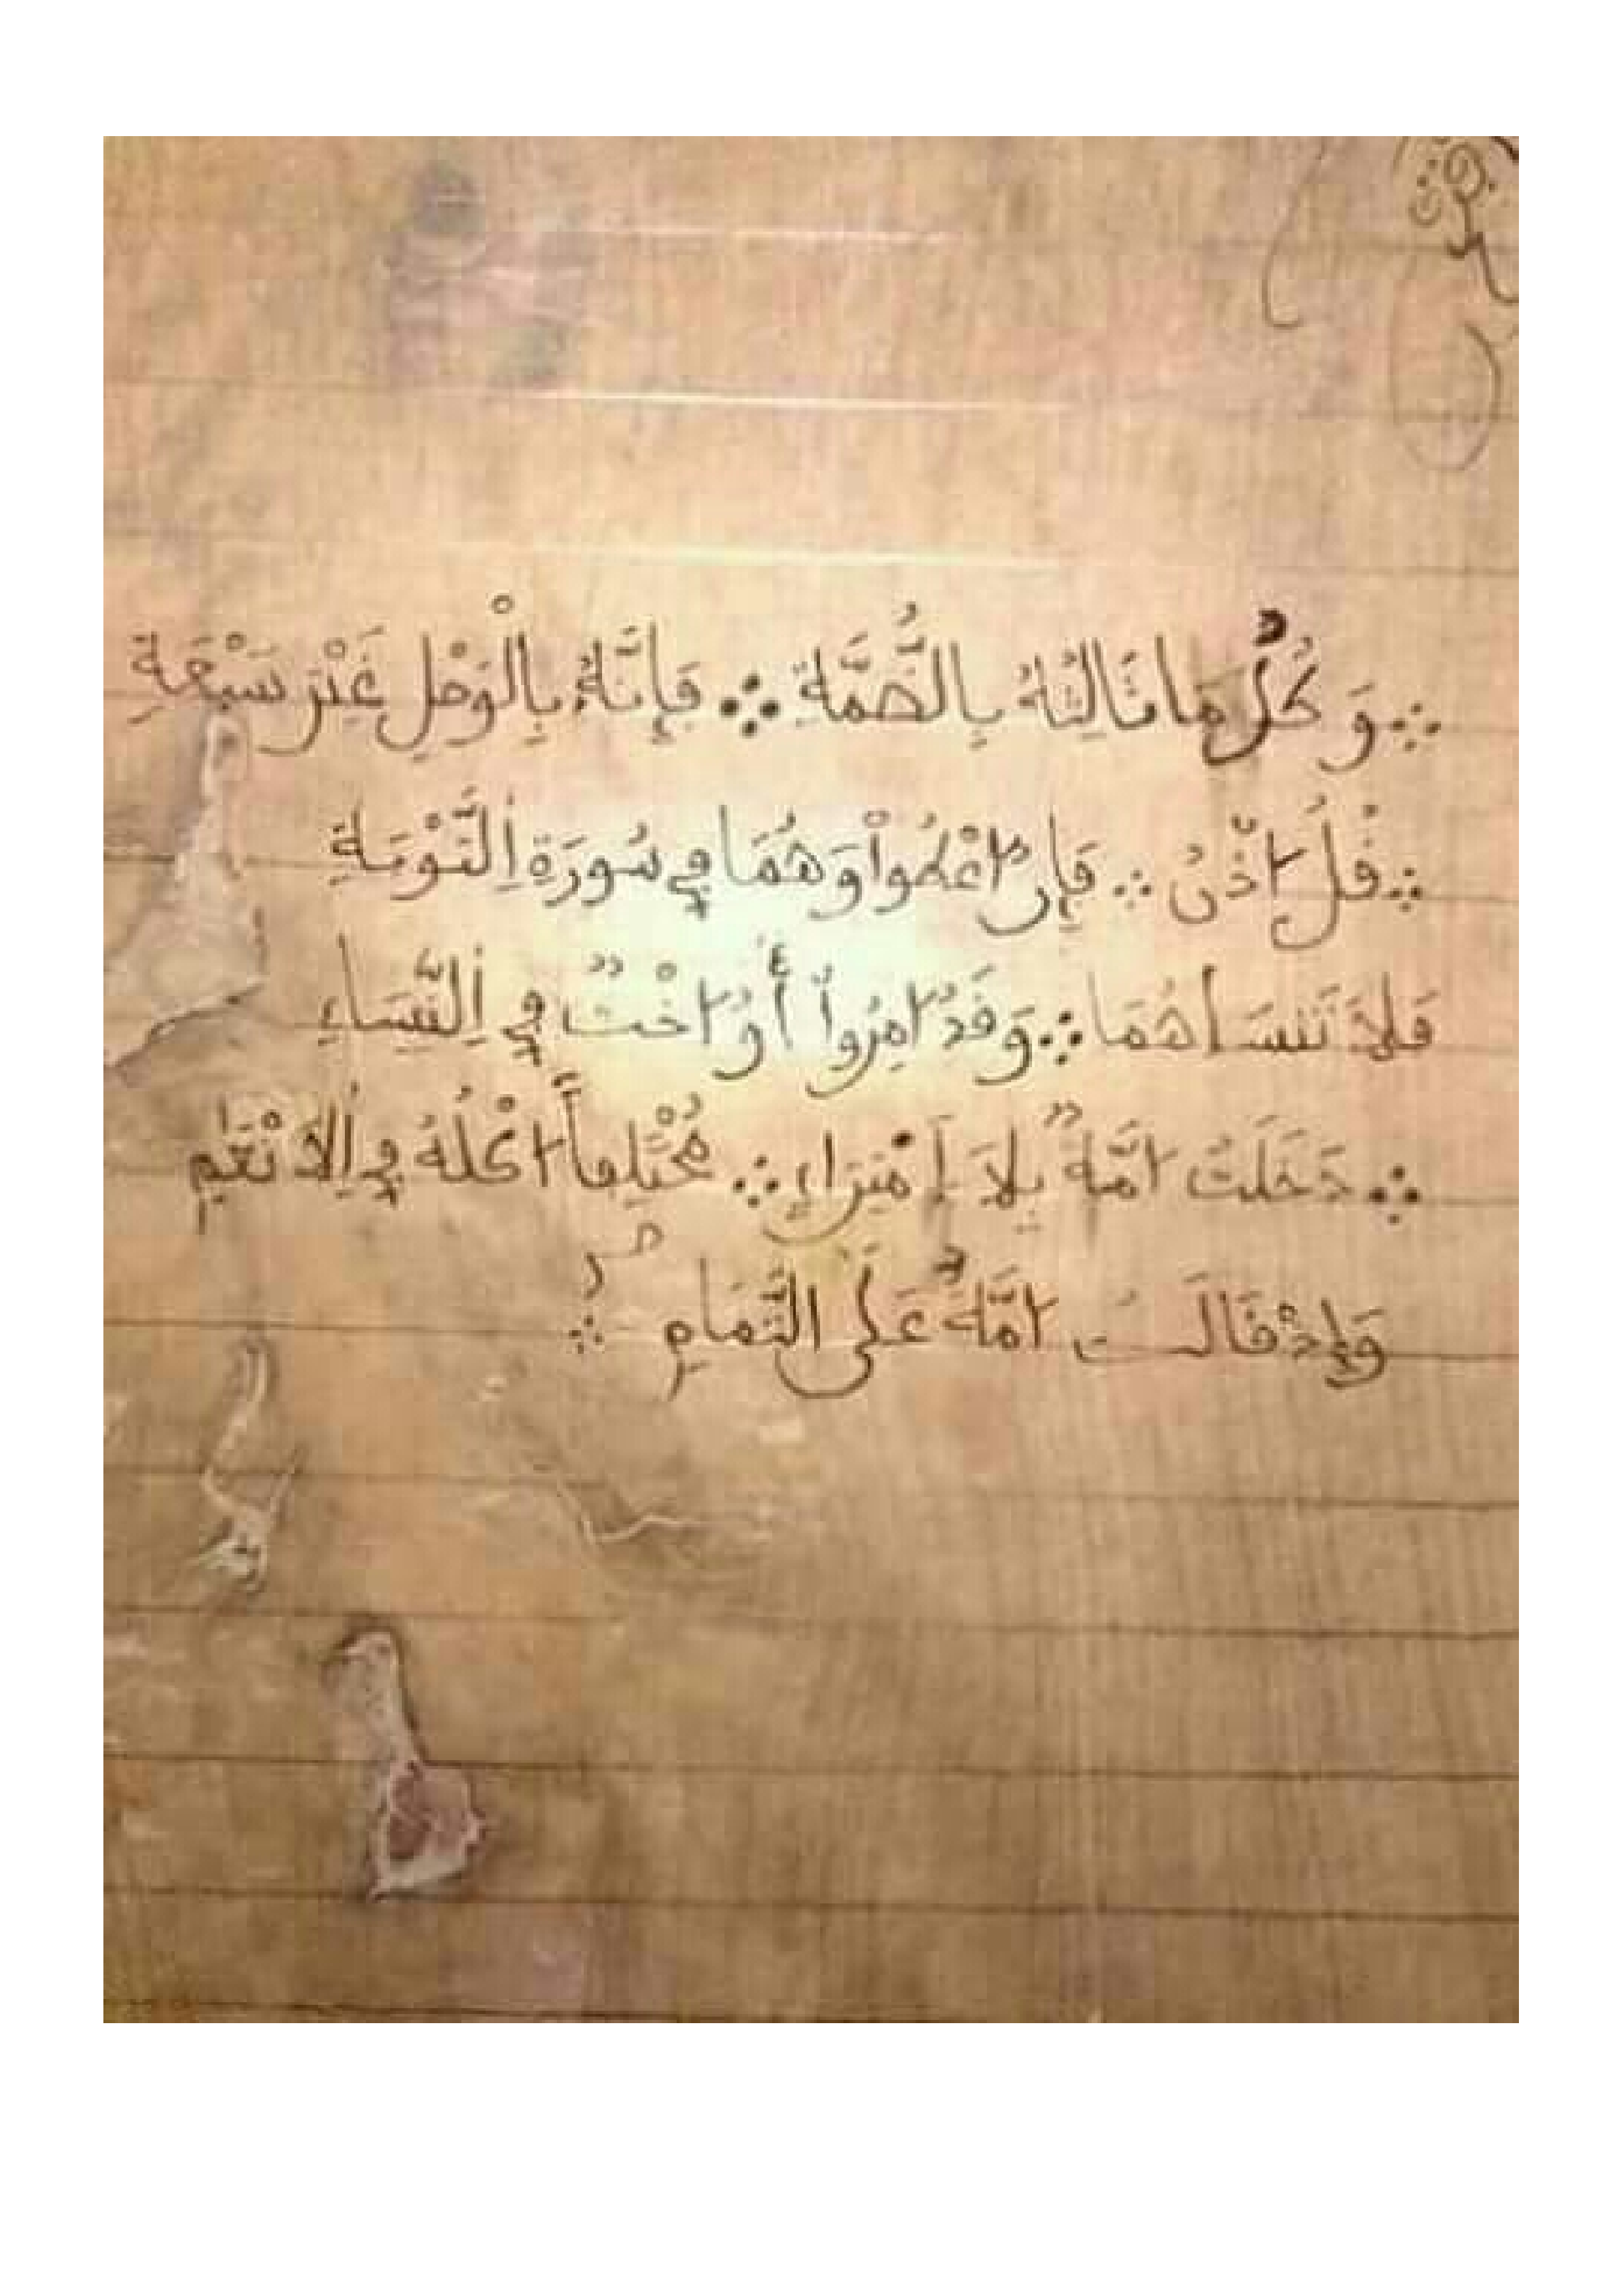 وَكُلُّ مَا ثَالِثُهُ بِالضُّمَّةِ ∴ فَإِنَّهُ بِالْوَصْلِ غَيْرَ سَبْعَةِ
∴ قُلُ اذْنُ ∴ فَإِنُ اعْطُواْ وَهُمَا فِي سُورَةِ اِلتَّوْبَةِ
فَلاَ تَنسَاهُمَا ∴ وَقَدُ امِرُواْ أَوُ اخْتٌ فِي اِلنِّسَاءِ
∴ دَخَلَتُ امَّةٌ بِلاَ اَمْتِرَاءٍ ∴ مُخْتَلِفاً اكْلُهُ فِي اِلاَنْعَٰمِ
وَإِذْ قَالَتُ امَّةٌ عَلَى التَّمَامِ ∴